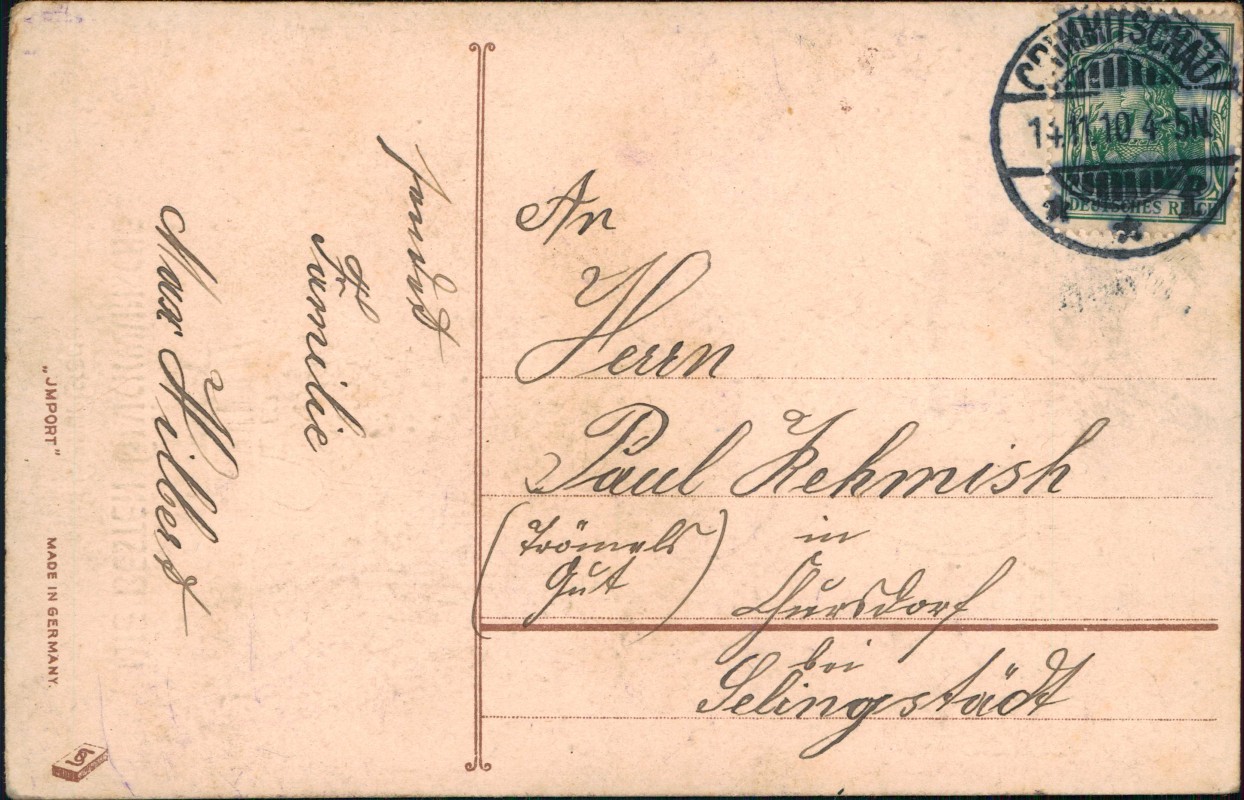 CRIMMITSCHAU
14.11.10. 4-5N.
DEUTSCHES REICH
sendet
Familie
Max Hilbert
„JMPORT“
MADE IN GERMANY.
An
Herrn
Paul Kehmish
(Trömels
Gut)
in
Chursdorf
bei
Selingstädt